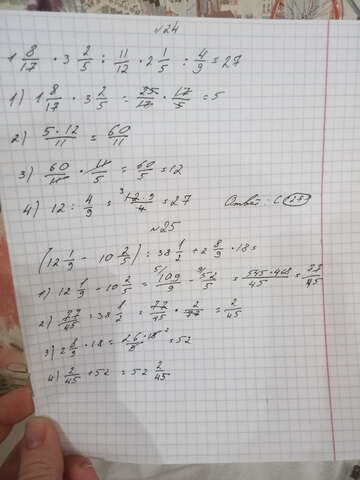 №24
1 8/17 · 3 2/5 : 11/12 · 2 1/5 : 4/9 = 27
1) 1 8/17 · 3 2/5 = 25/17 · 17/5 = 5
2) 5·12/11 = 60/11
3) 60/11 · 11/5 = 60/5 = 12
4) 12 : 4/9 = 12·9/4 = 27 Ответ: С
№25
(12 1/9 - 10 2/5) : 38 1/2 + 2 8/9 · 18 =
1) 12 1/9 - 10 2/5 = 109/9 - 52/5 = 545-468/45 = 77/45
2) 77/45 : 38 1/2 = 77/45 · 2/77 = 2/45
3) 2 8/9 · 18 = 26·18/9 = 52
4) 2/45 + 52 = 52 2/45